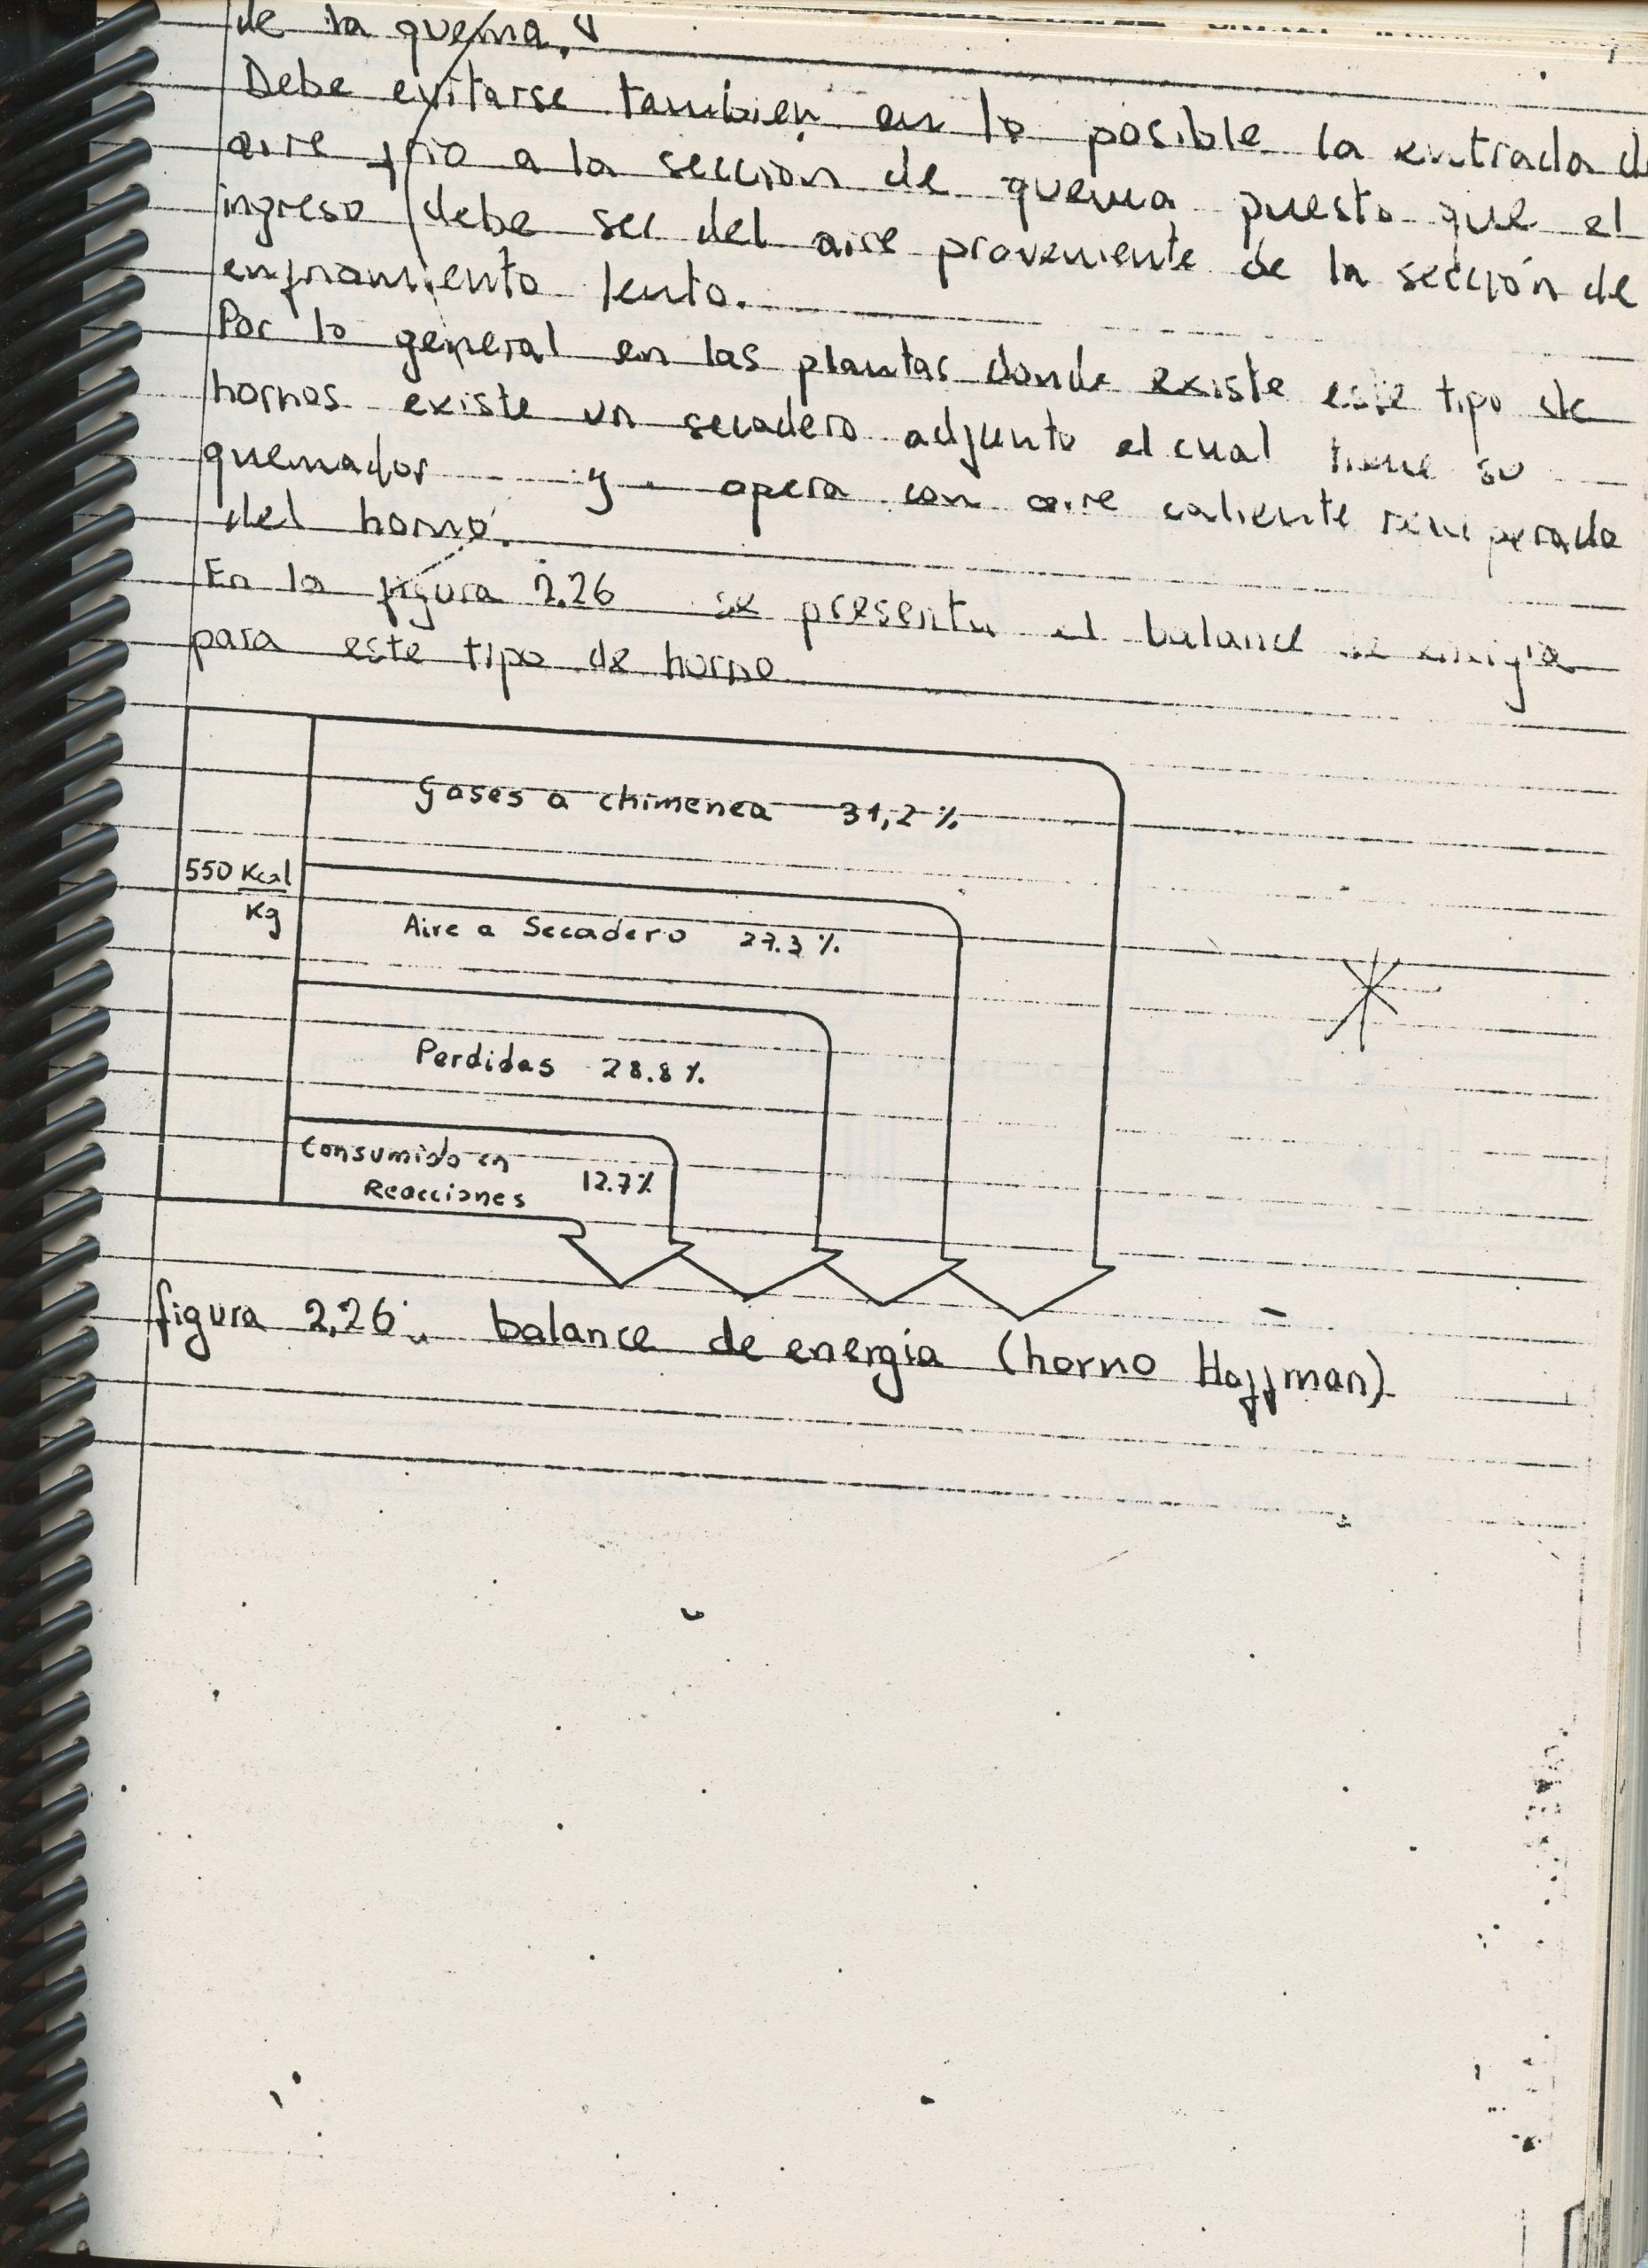 de la quema.
Debe evitarse tambien en lo posible la entrada de
aire frio a la sección de quema puesto que el
ingreso debe ser del aire proveniente de la sección de
enfriamiento lento.
Por lo general en las plantas donde existe este tipo de
hornos existe un secadero adjunto el cual tiene su
quemador y opera con aire caliente recuperado
del horno.
En la figura 2.26 se presenta el balance de energia
para este tipo de horno
gases a chimenea 31,2 %
550 Kcal
Kg
Aire a Secadero 27.3 %
Perdidas 28.8 %
Consumido en
Reacciones 12.7 %
figura 2,26: balance de energia (horno Hoffman)